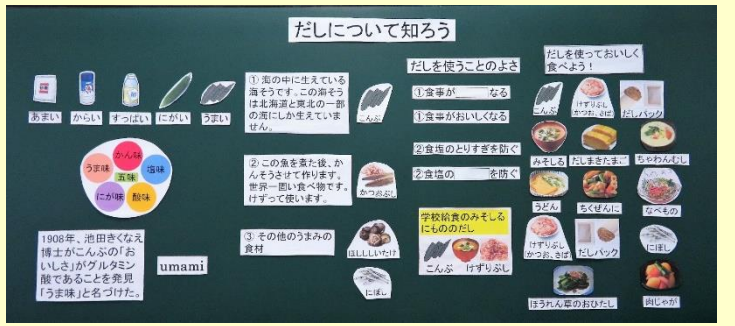 だしについて知ろう
あまい
からい
すっぱい
にがい
うまい
かん味
うま味
塩味
五味
にが味
酸味
1908年、池田きくなえ
博士がこんぶの「お
いしさ」がグルタミン
酸であることを発見
「うま味」と名づけた。
umami
① 海の中に生えている
海そうです。この海そう
は北海道と東北の一部
の海にしか生えていま
せん。
こんぶ
② この魚を煮た後、か
んそうさせて作ります。
世界一固い食べ物です。
けずって使います。
かつおぶし
③ その他のうまみの
食材
ほししいたけ
にぼし
だしを使うことのよさ
①食事が　　　なる
①食事がおいしくなる
②食塩のとりすぎを防ぐ
②食塩の　　　を防ぐ
学校給食のみそしる
にもののだし
こんぶ
けずりぶし
だしを使っておいしく
食べよう！
こんぶ
けずりぶし
かつお、さば
だしパック
みそしる
だしまきたまご
ちゃわんむし
うどん
ちくぜんに
なべもの
けずりぶし
かつお、さば
だしパック
にぼし
ほうれん草のおひたし
肉じゃが